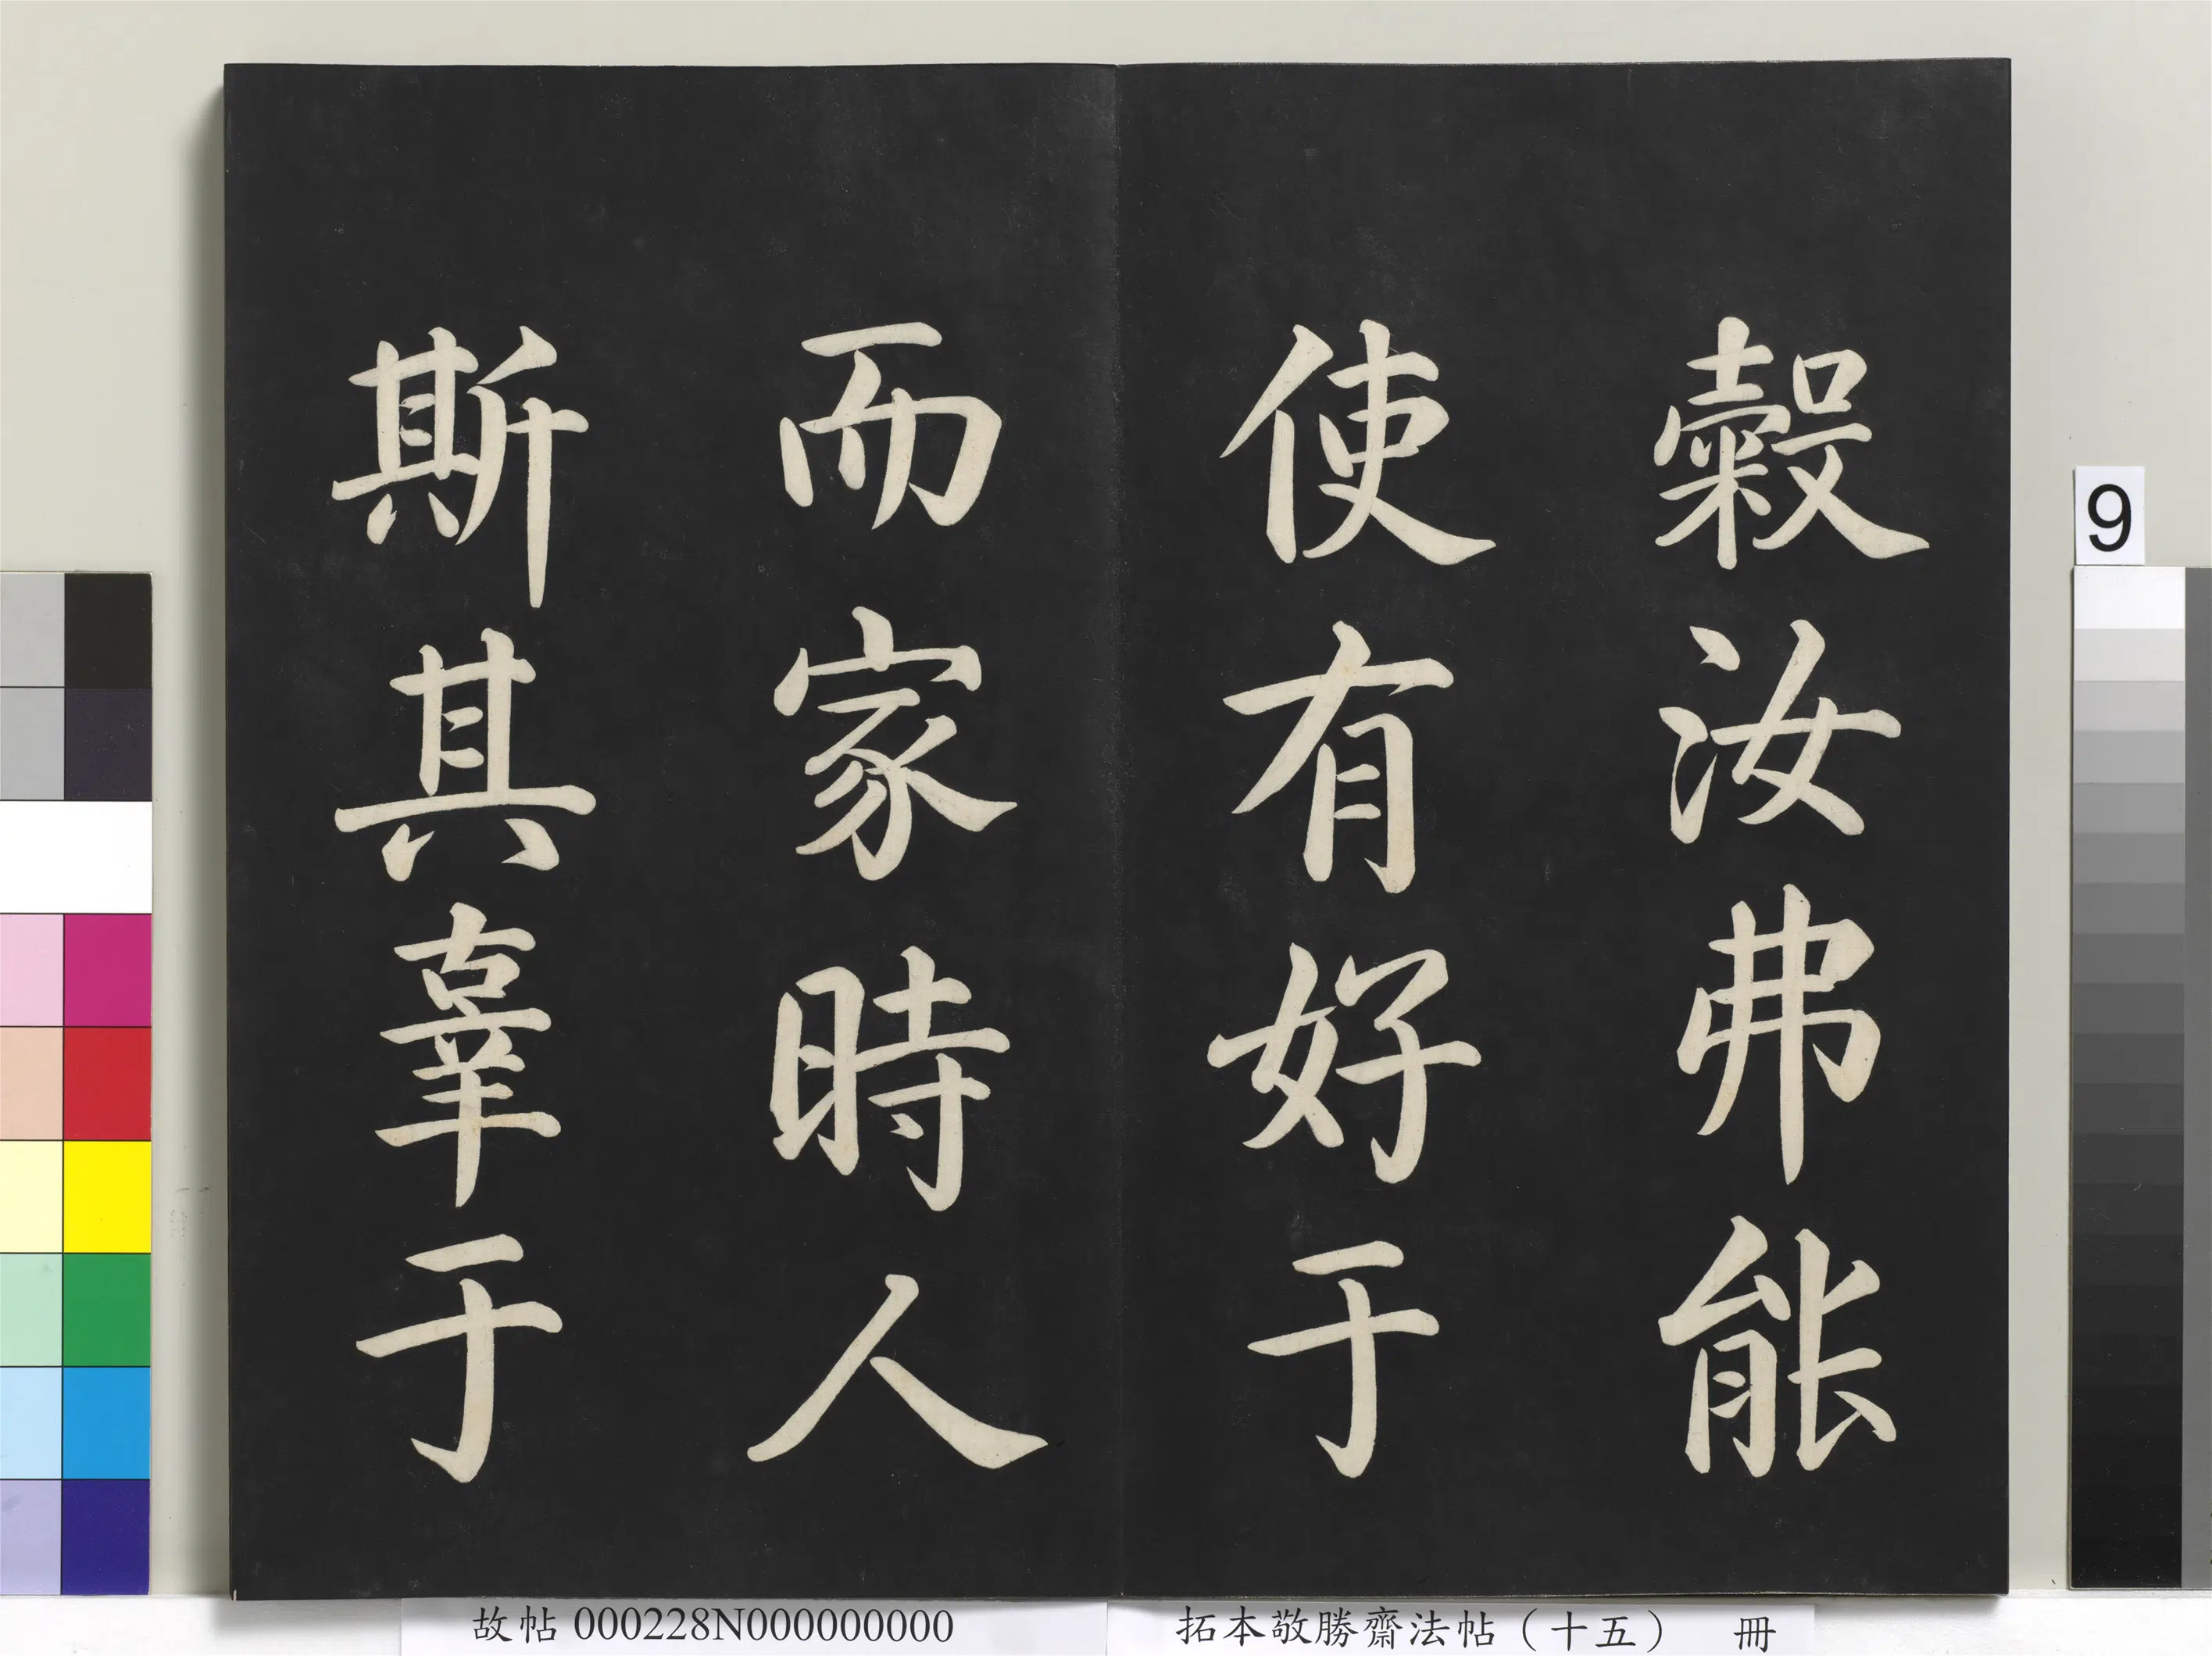 穀汝弗能
使有好于
而家時人
斯其辜于
9
故帖 000228N000000000
拓本敬勝齋法帖（十五） 冊